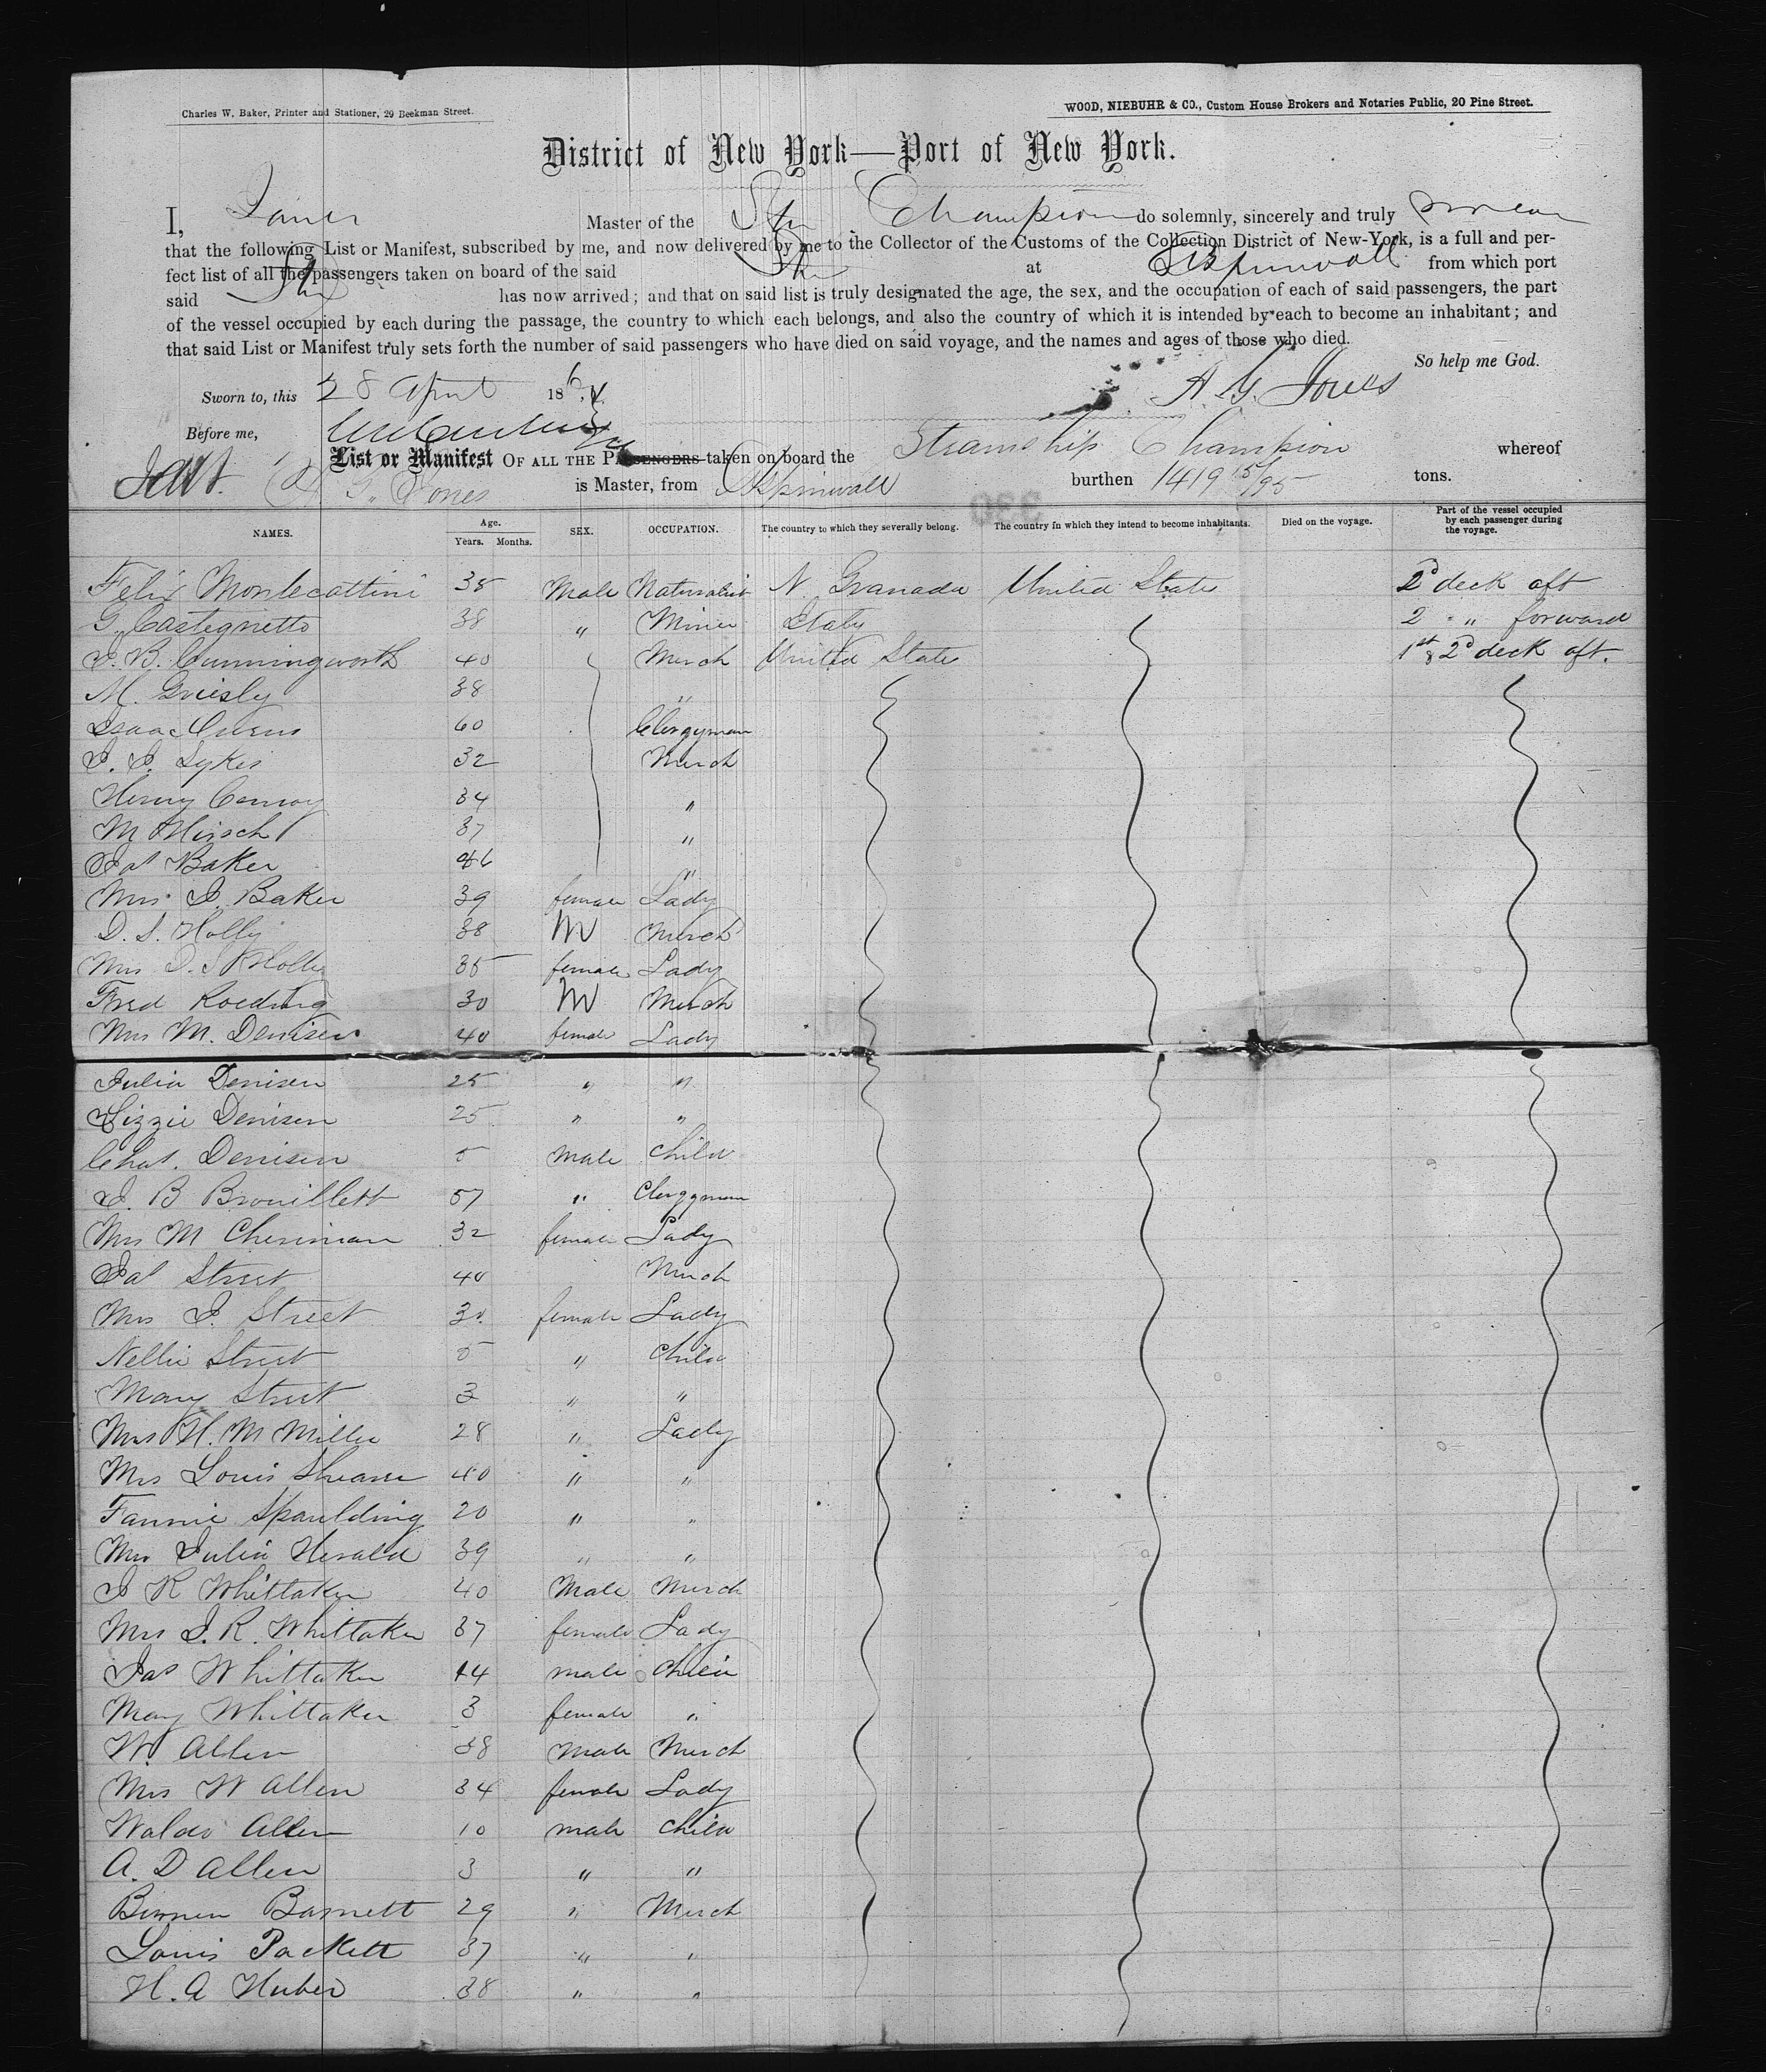 Charles W. Baker, Printer and Stationer, 29 Beekman Street.
WOOD, NIEBUHR & CO., Custom House Brokers and Notaries Public, 20 Pine Street.
District of New York—Port of New York.
I, Jones Master of the Str Champion do solemnly, sincerely and truly swear
that the following List or Manifest, subscribed by me, and now delivered by me to the Collector of the Customs of the Collection District of New-York, is a full and per-
fect list of all the passengers taken on board of the said Str at Aspinwall from which port
said Str has now arrived; and that on said list is truly designated the age, the sex, and the occupation of each of said passengers, the part
of the vessel occupied by each during the passage, the country to which each belongs, and also the country of which it is intended by each to become an inhabitant; and
that said List or Manifest truly sets forth the number of said passengers who have died on said voyage, and the names and ages of those who died.
So help me God.
Sworn to, this 28 April 1864. A. G. Jones
Before me,
List or Manifest OF ALL THE PASSENGERS taken on board the Steamship Champion whereof
A G. Jones is Master, from Aspinwall burthen 1419 15/95 tons.
330
NAMES. Age. Years. Months. SEX. OCCUPATION. The country to which they severally belong. The country in which they intend to become inhabitants. Died on the voyage. Part of the vessel occupied by each passenger during the voyage.
Felix Montecattini 38 Male Naturalist N. Granada United States 2d deck aft
G. Castegnetto 38 " Miner Italy 2 " " forward
J. B. Cunningworth 40 Merch United States 1st & 2d deck aft.
M. Griesly 38 "
Isaac Owens 60 Clergyman
J. J. Sykes 32 Merch
Henry Conroy 34 "
M Hirsch 37 "
Jas Baker 46 "
Mrs J. Baker 39 female Lady
D. S. Holly 38 M Merch
Mrs D. S. Holly 35 female Lady
Fred Roeding 30 M Merch
Mrs M. Denisen 40 female Lady
Julia Denisen 25 " "
Lizzie Denisen 25 " "
Chas. Denisen 5 male Child
J. B Brouillett 57 " Clergyman
Mrs M Cheriman 32 female Lady
Jas Street 40 Merch
Mrs J. Street 30 female Lady
Nellie Street 5 " Child
Mary Street 3 " "
Mrs H. M Miller 28 " Lady
Mrs Louis 40 " "
Fannie Spaulding 20 " "
Mrs Julia Herald 39 " "
J R Whittaker 40 Male Merch
Mrs J. R. Whittaker 37 female Lady
Jas Whittaker 14 male Child
Mary Whittaker 3 female "
W Allen 38 male Merch
Mrs W Allen 34 female Lady
Waldo Allen 10 male Child
A. D Allen 3 " "
Barnett 29 " Merch
Louis Packett 37 " "
H. A Huber 38 " "